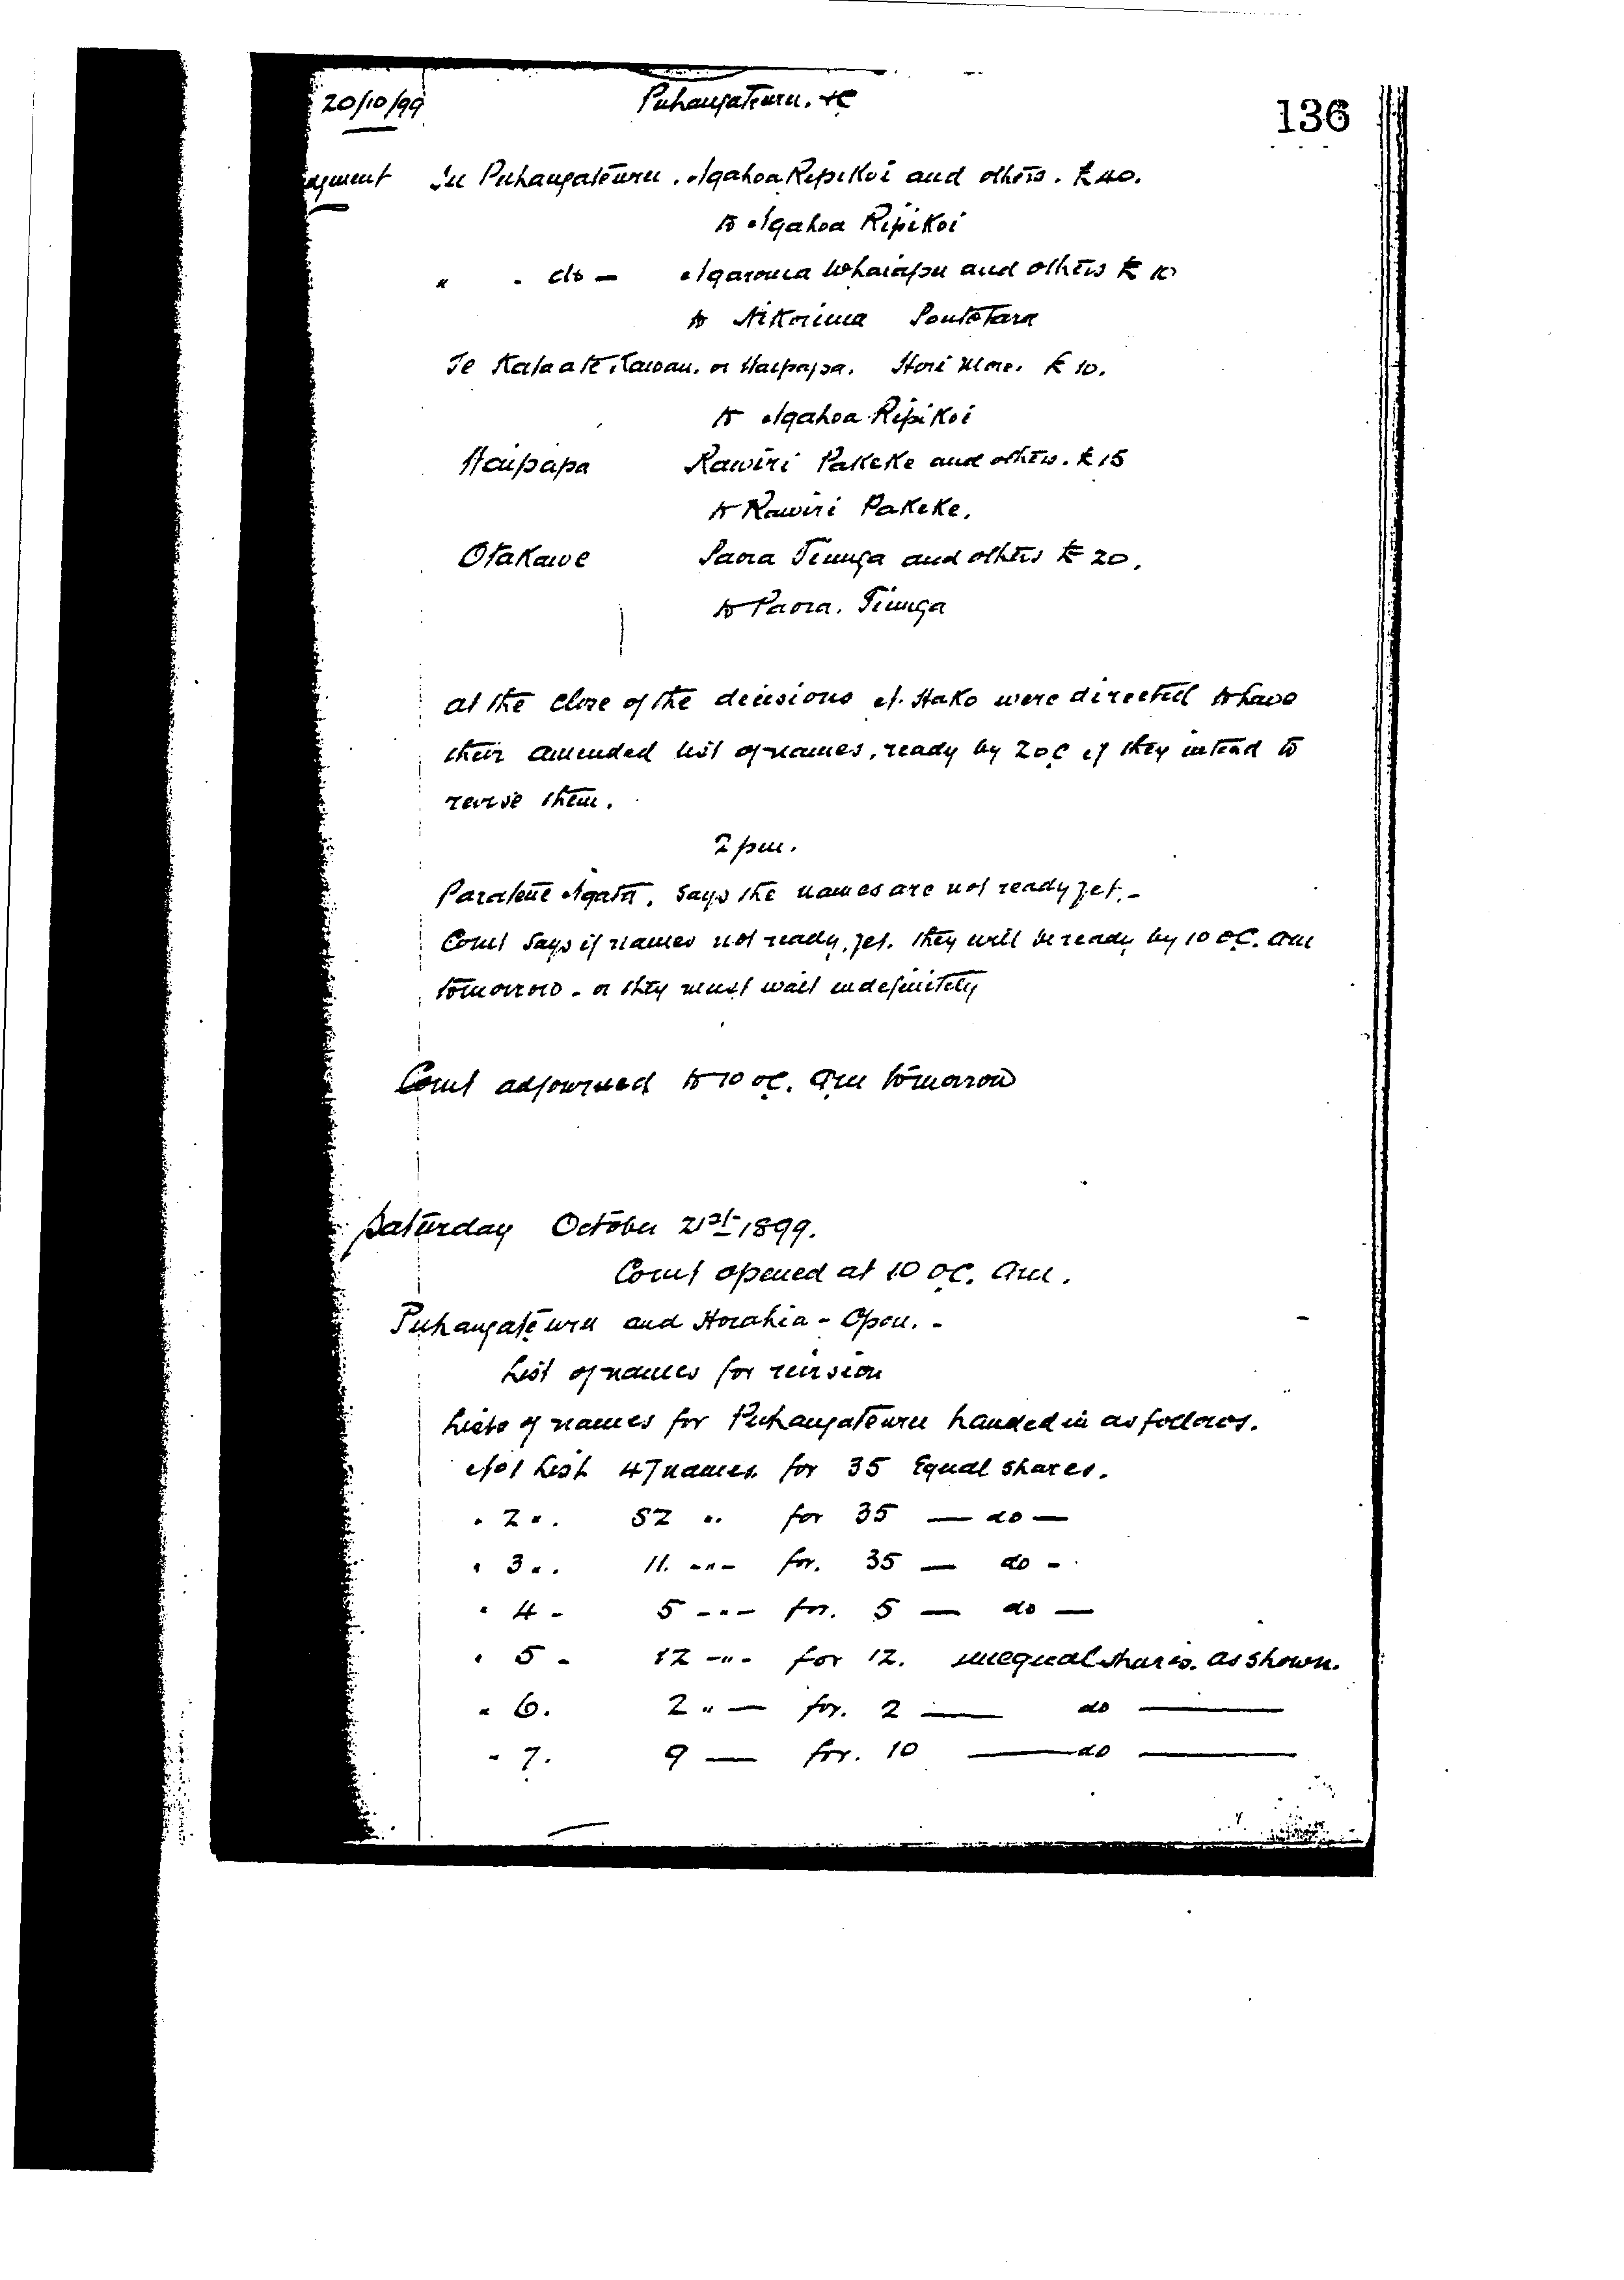 20/10/99 Puhangateuru. &c 136
dgment In Puhangateuru. Ngahoa Ripikoi and others. £40.
to Ngahoa Ripikoi
" . do - Ngaroma Whaiapu and others £10
to Nikorima Poutotara
Te Kataate Kawau. or Haipapa. Hori More. £10.
to Ngahoa Ripikoi
Haipapa Rawiri Pakeke and others. £15
to Rawiri Pakeke.
Otakawe Paora Tiunga and others £20.
to Paora. Tiunga
at the close of the decisions N. Hako were directed to have
their amended list of names, ready by 2 oC if they intend to
revise them.
2 pm.
Paratene Ngata. says the names are not ready yet. -
Court says if names not ready, yet. they will be ready by 10 oC. am
tomorrow - or they must wait indefinitely
Court adjourned to 10 oC. am tomorrow
Saturday October 21st 1899.
Court opened at 10 oC. am.
Puhangateuru and Horahia - Opou. -
List of names for revision
Lists of names for Puhangateuru handed in as follows.
No 1 List 47 names. for 35 Equal shares.
" 2 ". 52 " for 35 — do —
" 3 ". 11. -"- for. 35 — do -
" 4 - 5 -"- for. 5 — do —
" 5 - 12 -"- for 12. unequal shares. as shown.
" 6. 2 " — for. 2 — do —
" 7. 9 — for. 10 — do —